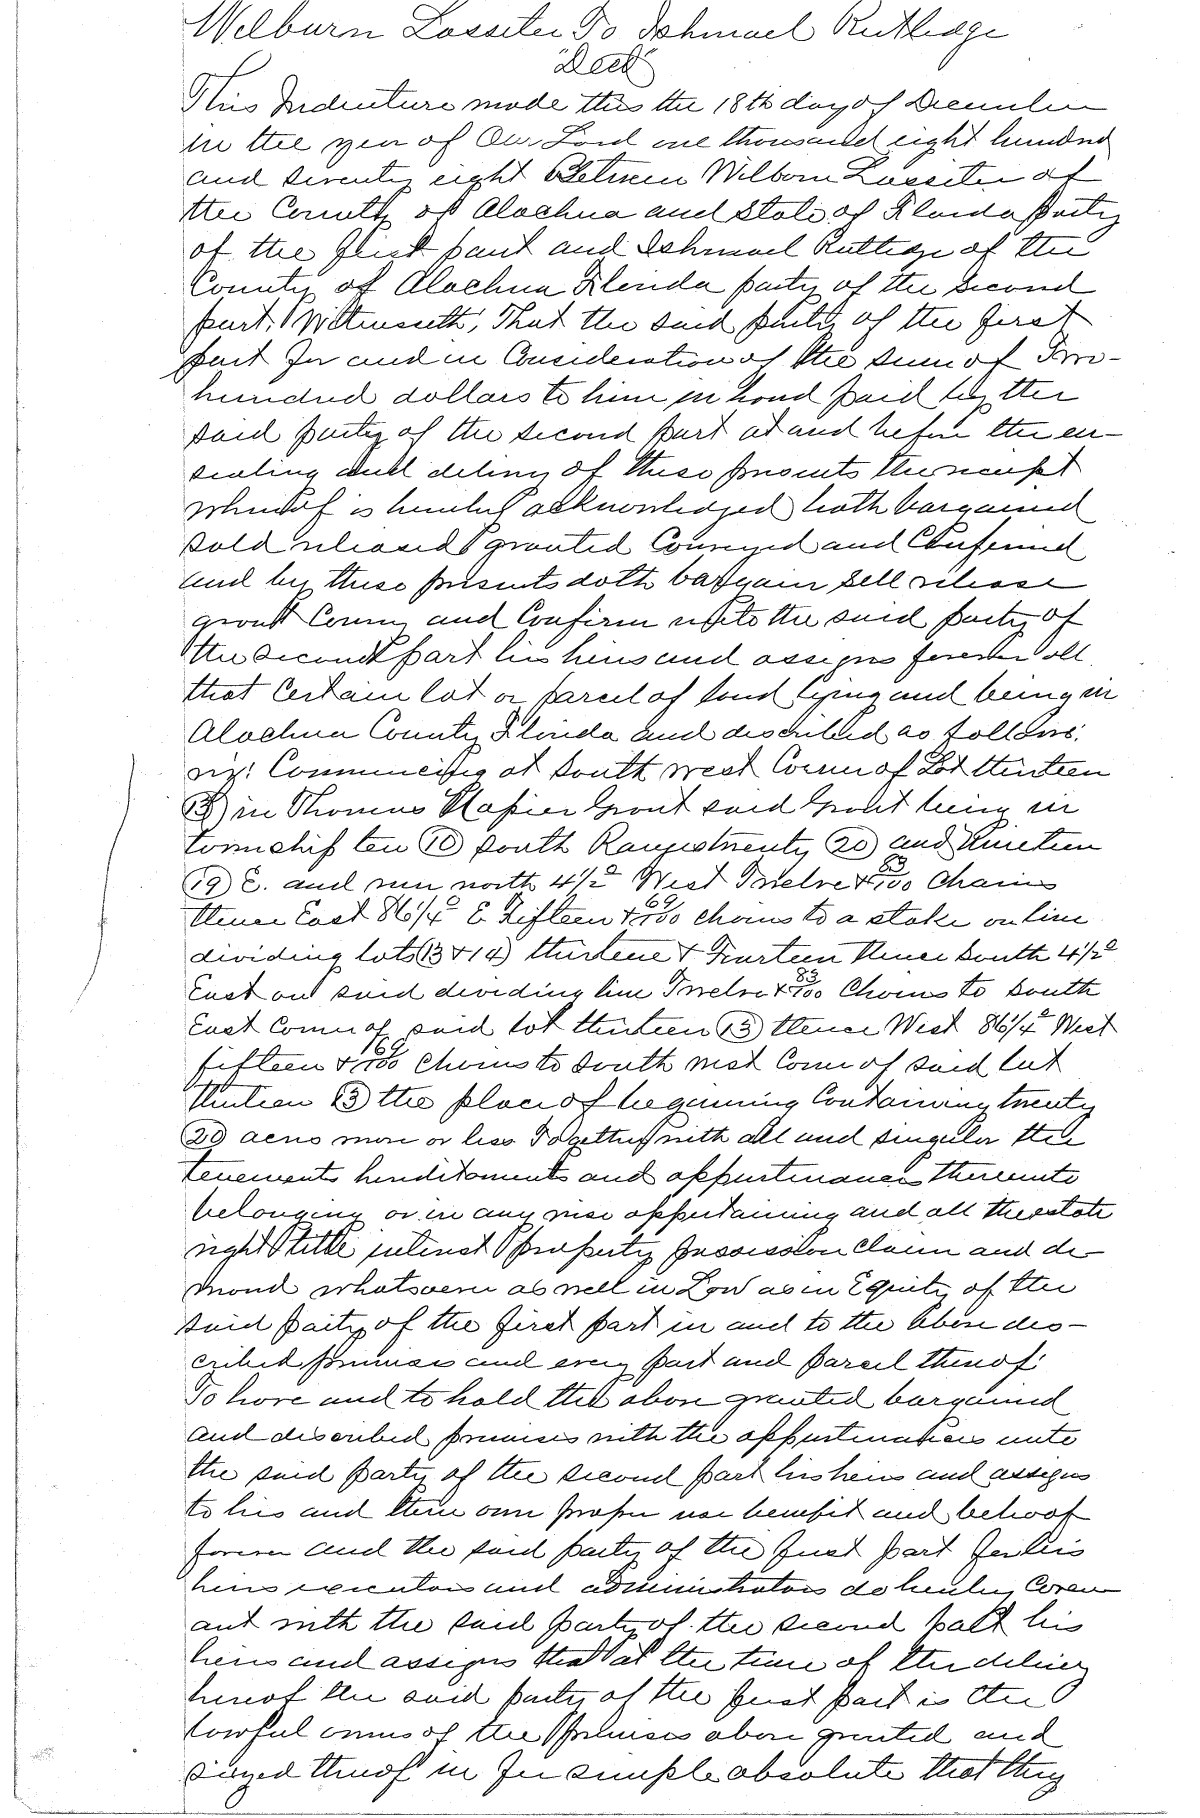 Welburn Lassiter To Ishmael Rutledge
"Deed"
This Indenture made this the 18th day of December
in the year of Our Lord one thousand eight hundred
and seventy eight Between Wilborn Lassiter of
the County of Alachua and State of Florida party
of the first part and Ishmael Rutledge of the
County of Alachua Florida party of the second
part. Witnesseth, That the said party of the first
part for and in Consideration of the sum of Two-
hundred dollars to him in hand paid by the
said party of the second part at and before the en-
sealing and delivery of these presents the receipt
whereof is hereby acknowledged hath bargained
sold released granted Conveyed and Confirmed
and by these presents doth bargain sell release
grant Convey and Confirm unto the said party of
the second part his heirs and assigns forever all
that Certain lot or parcel of land lying and being in
Alachua County Florida and described as follows:
viz: Commencing at South west Corner of Lot thirteen
(13) in Thomas Napier Grant said Grant being in
township ten (10) South Range twenty (20) and Nineteen
(19) E. and run north 4½° West Twelve & 83/100 Chains
thence East 86¼° E Fifteen & 69/100 chains to a stake on line
dividing lots (13 & 14) thirteen & Fourteen thence South 4½°
East on said dividing line Twelve & 83/100 Chains to South
East Corner of said lot thirteen (13) thence West 86¼° West
fifteen & 69/100 Chains to South west Corner of said lot
thirteen (13) the place of beginning Containing twenty
(20) acres more or less Together with all and singular the
tenements hereditaments and appurtenances thereunto
belonging or in any wise appertaining and all the estate
right title interest property possession claim and de-
mand whatsoever as well in Law as in Equity of the
said party of the first part in and to the above des-
cribed premises and every part and parcel thereof:
To have and to hold the above granted bargained
and described premises with the appurtenances unto
the said party of the second part his heirs and assigns
to his and their own proper use benefit and behoof
forever and the said party of the first part for his
heirs executors and administrators do hereby Coven
ant with the said party of the second part his
heirs and assigns that at the time of the delivery
hereof the said party of the first part is the
lawful owner of the premises above granted and
siezed thereof in fee simple absolute that they